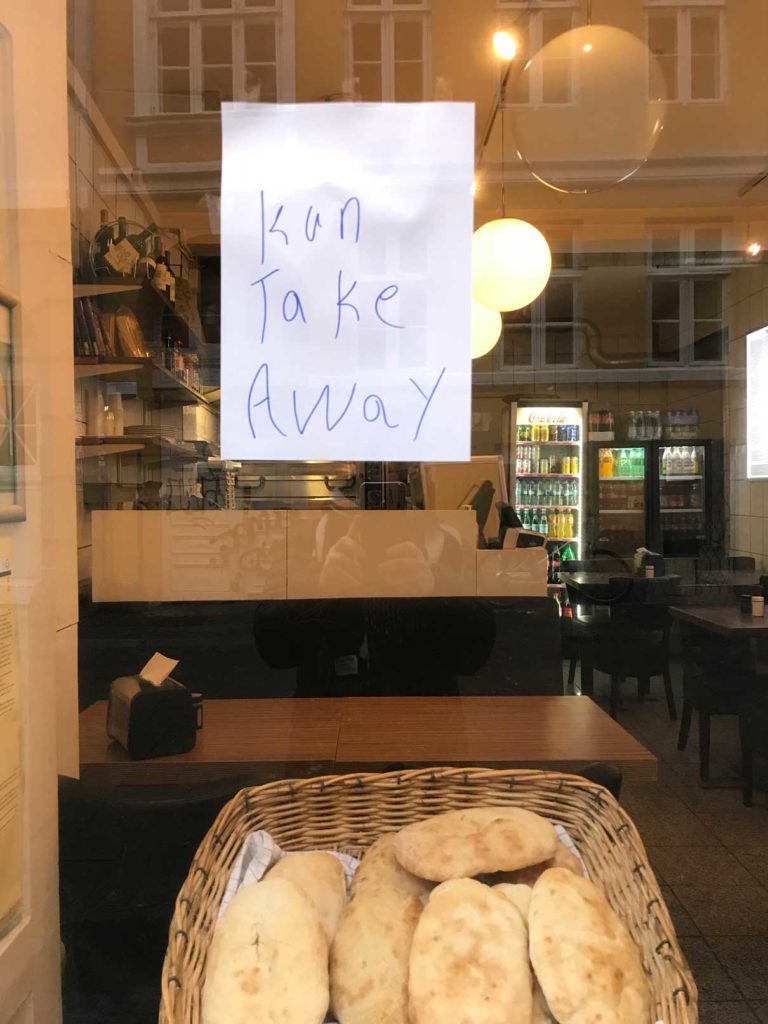 Kun
Take
Away
Coca-Cola